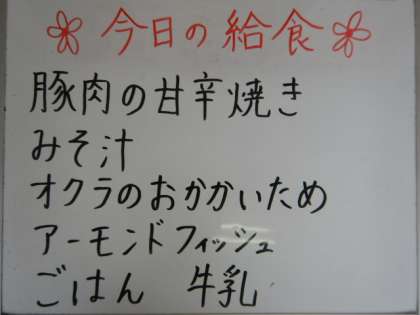 今日の給食
豚肉の甘辛焼き
みそ汁
オクラのおかかいため
アーモンドフィッシュ
ごはん 牛乳